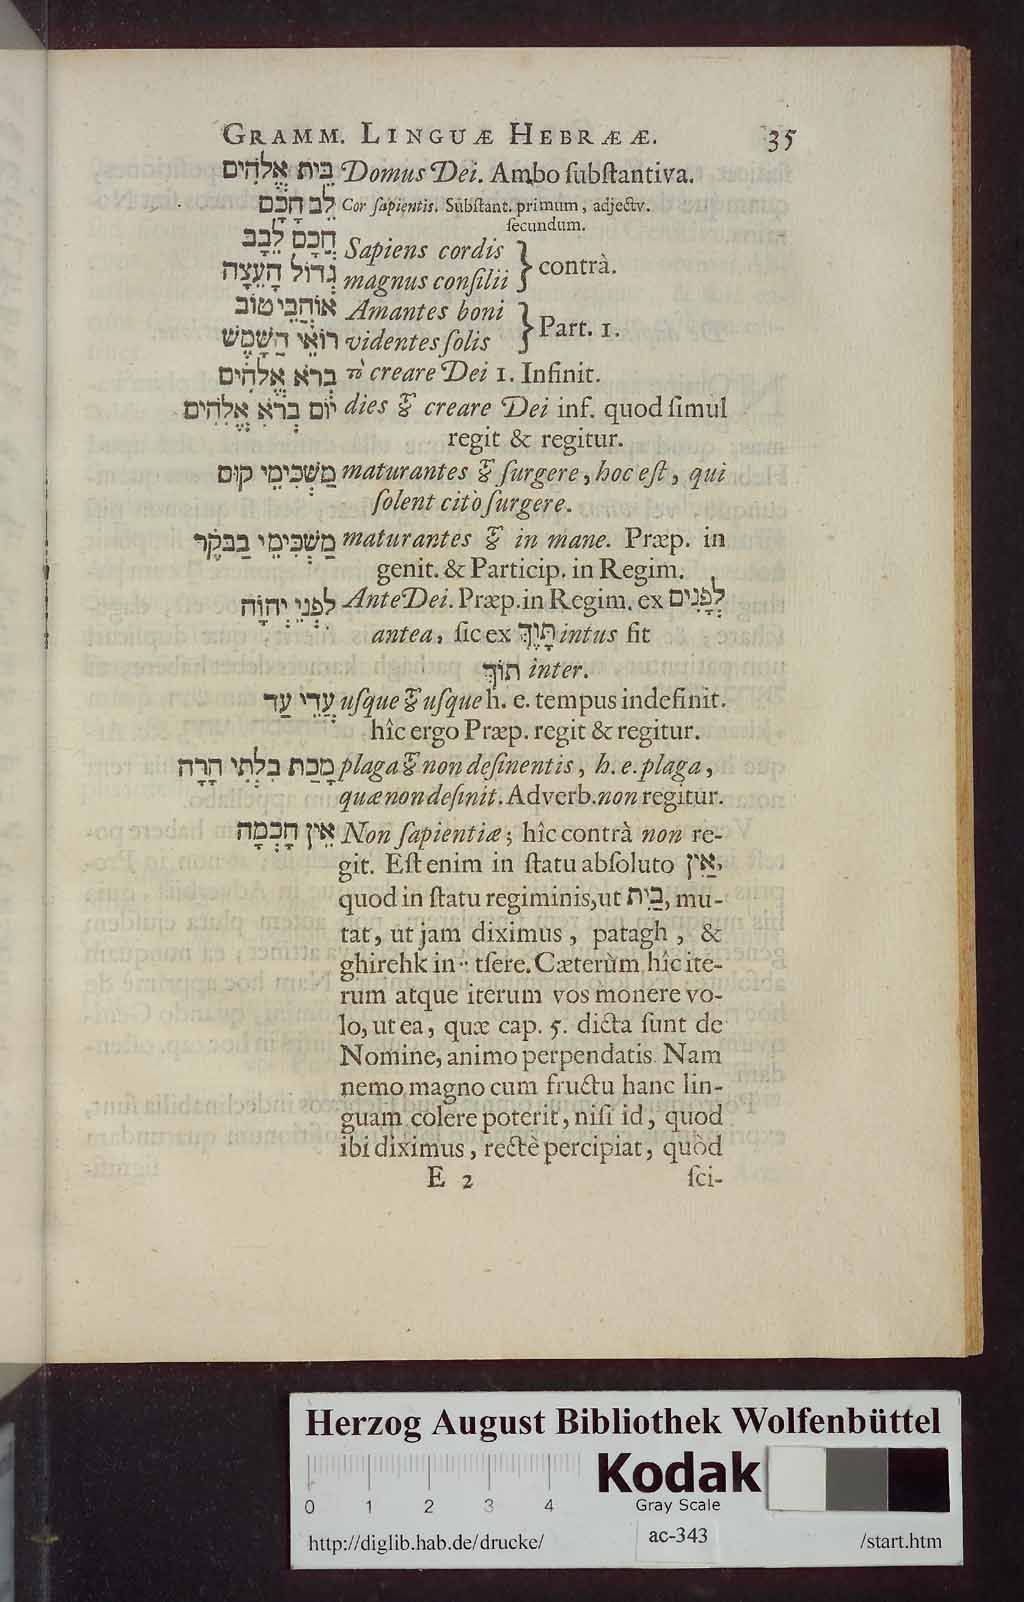 GRAMM. LINGUÆ HEBRÆÆ. 35
בֵּית אֱלֹהִים Domus Dei. Ambo ſubſtantiva.
לֵב חָכָם Cor ſapientis. Subſtant. primum, adjectv.
ſecundum.
חֲכַם לֵבָב Sapiens cordis
גְּדוֹל הָעֵצָה magnus conſilii } contrà.
אוֹהֲבֵי טוֹב Amantes boni
רוֹאֵי הַשָּׁמֶשׁ videntes ſolis } Part. 1.
בְּרֹא אֱלֹהִים τὸ creare Dei 1. Infinit.
יוֹם בְּרֹא אֱלֹהִים dies τοῦ creare Dei inf. quod ſimul
regit & regitur.
מַשְׁכִּימֵי קוּם maturantes τοῦ ſurgere, hoc eſt, qui
ſolent citò ſurgere.
מַשְׁכִּימֵי בַבֹּקֶר maturantes τοῦ in mane. Præp. in
genit. & Particip. in Regim.
לִפְנֵי יְהוָֹה Ante Dei. Præp. in Regim. ex לְפָנִים
antea, ſic ex תָּוֶךְ intus fit
תוֹךְ inter.
עֲדֵי עַד uſque τοῦ uſque h. e. tempus indefinit.
hîc ergo Præp. regit & regitur.
מַכַּת בִּלְתִּי הָרָה plaga τοῦ non deſinentis, h. e. plaga,
quæ non deſinit. Adverb. non regitur.
אֵין חָכְמָה Non ſapientiæ; hîc contrà non re-
git. Eſt enim in ſtatu abſoluto אַיִן,
quod in ſtatu regiminis, ut בַּיִת, mu-
tat, ut jam diximus, patagh, &
ghirehk in ֵ tſere. Cæterùm hîc ite-
rum atque iterum vos monere vo-
lo, ut ea, quæ cap. 5. dicta ſunt de
Nomine, animo perpendatis. Nam
nemo magno cum fructu hanc lin-
guam colere poterit, niſi id, quod
ibi diximus, rectè percipiat, quòd
E 2 ſci-
Herzog August Bibliothek Wolfenbüttel
Kodak
0 1 2 3 4 Gray Scale
http://diglib.hab.de/drucke/ ac-343 /start.htm